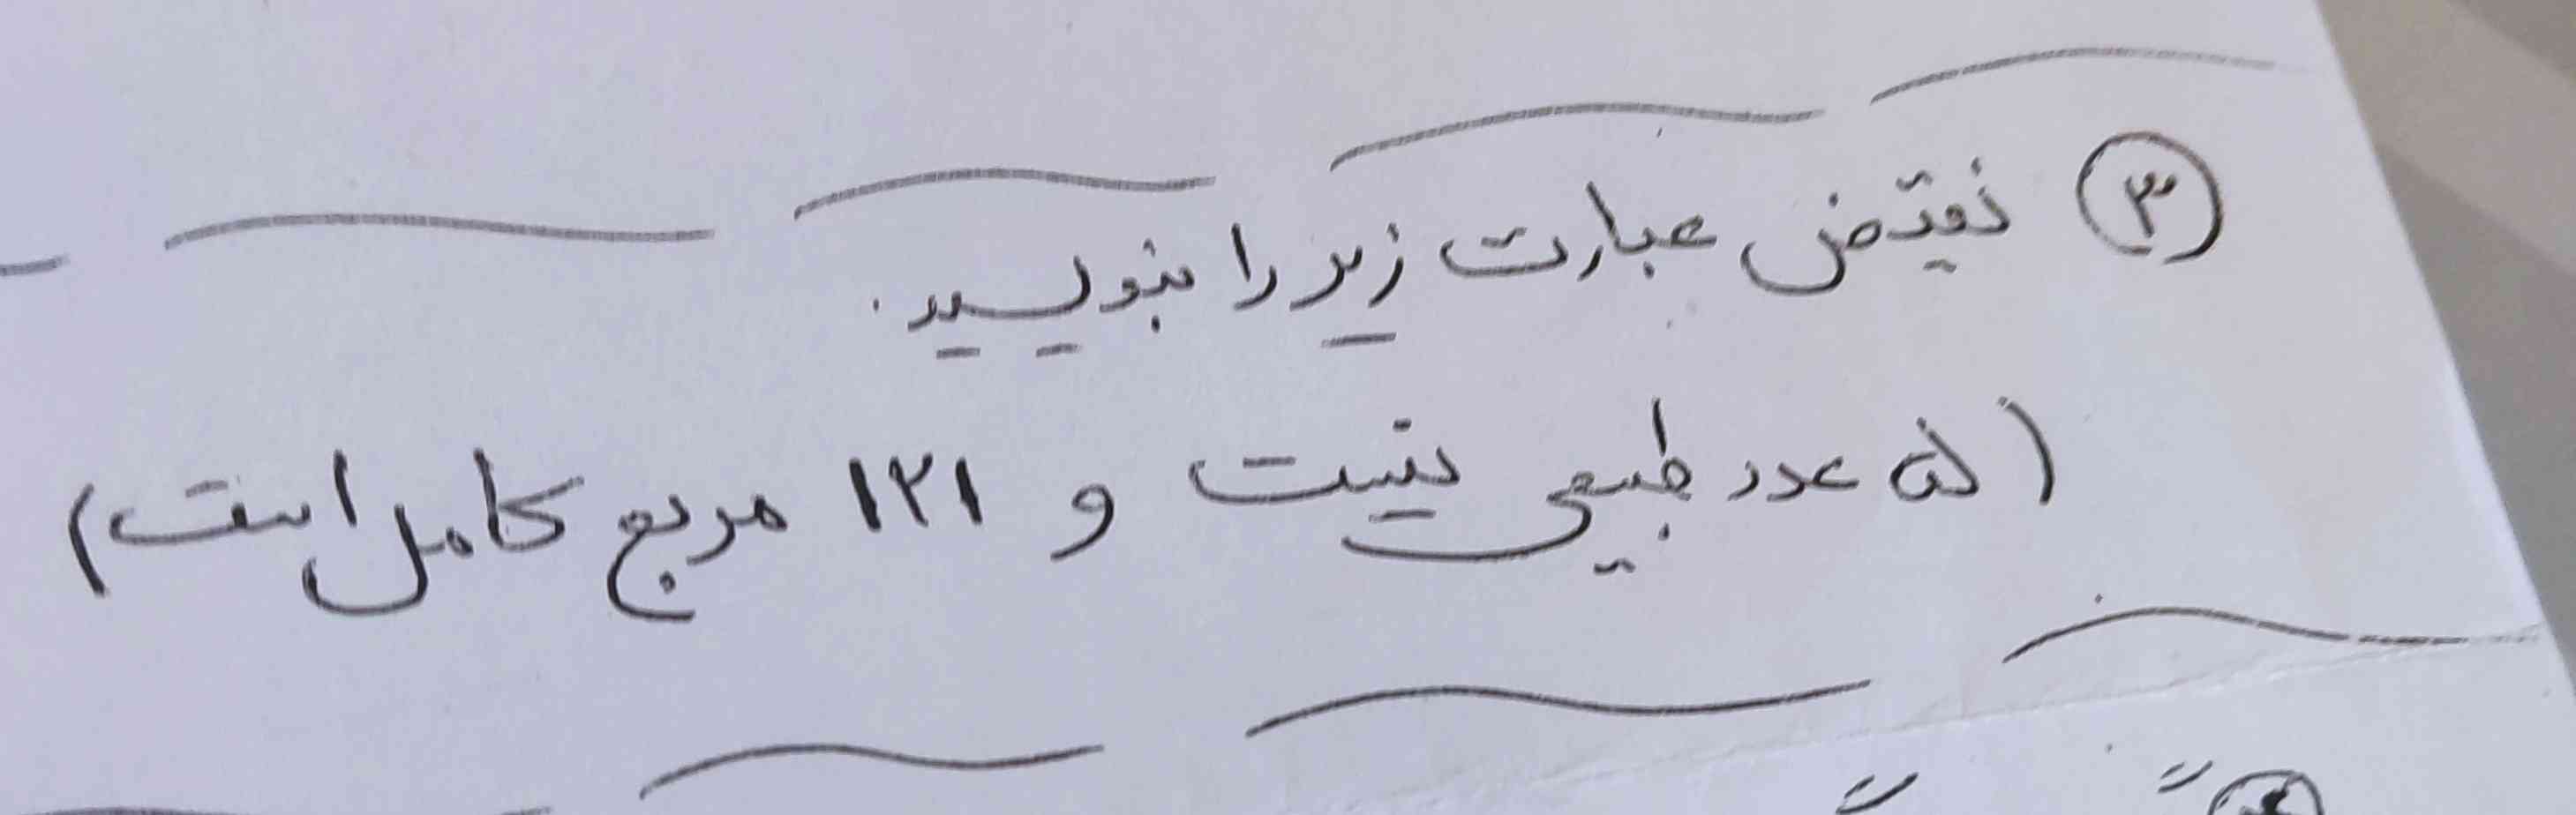 ③ نقیض عبارت زیر را بنویسید.
( عدد طبیعی نیست و ۱۲۱ مربع کامل است)